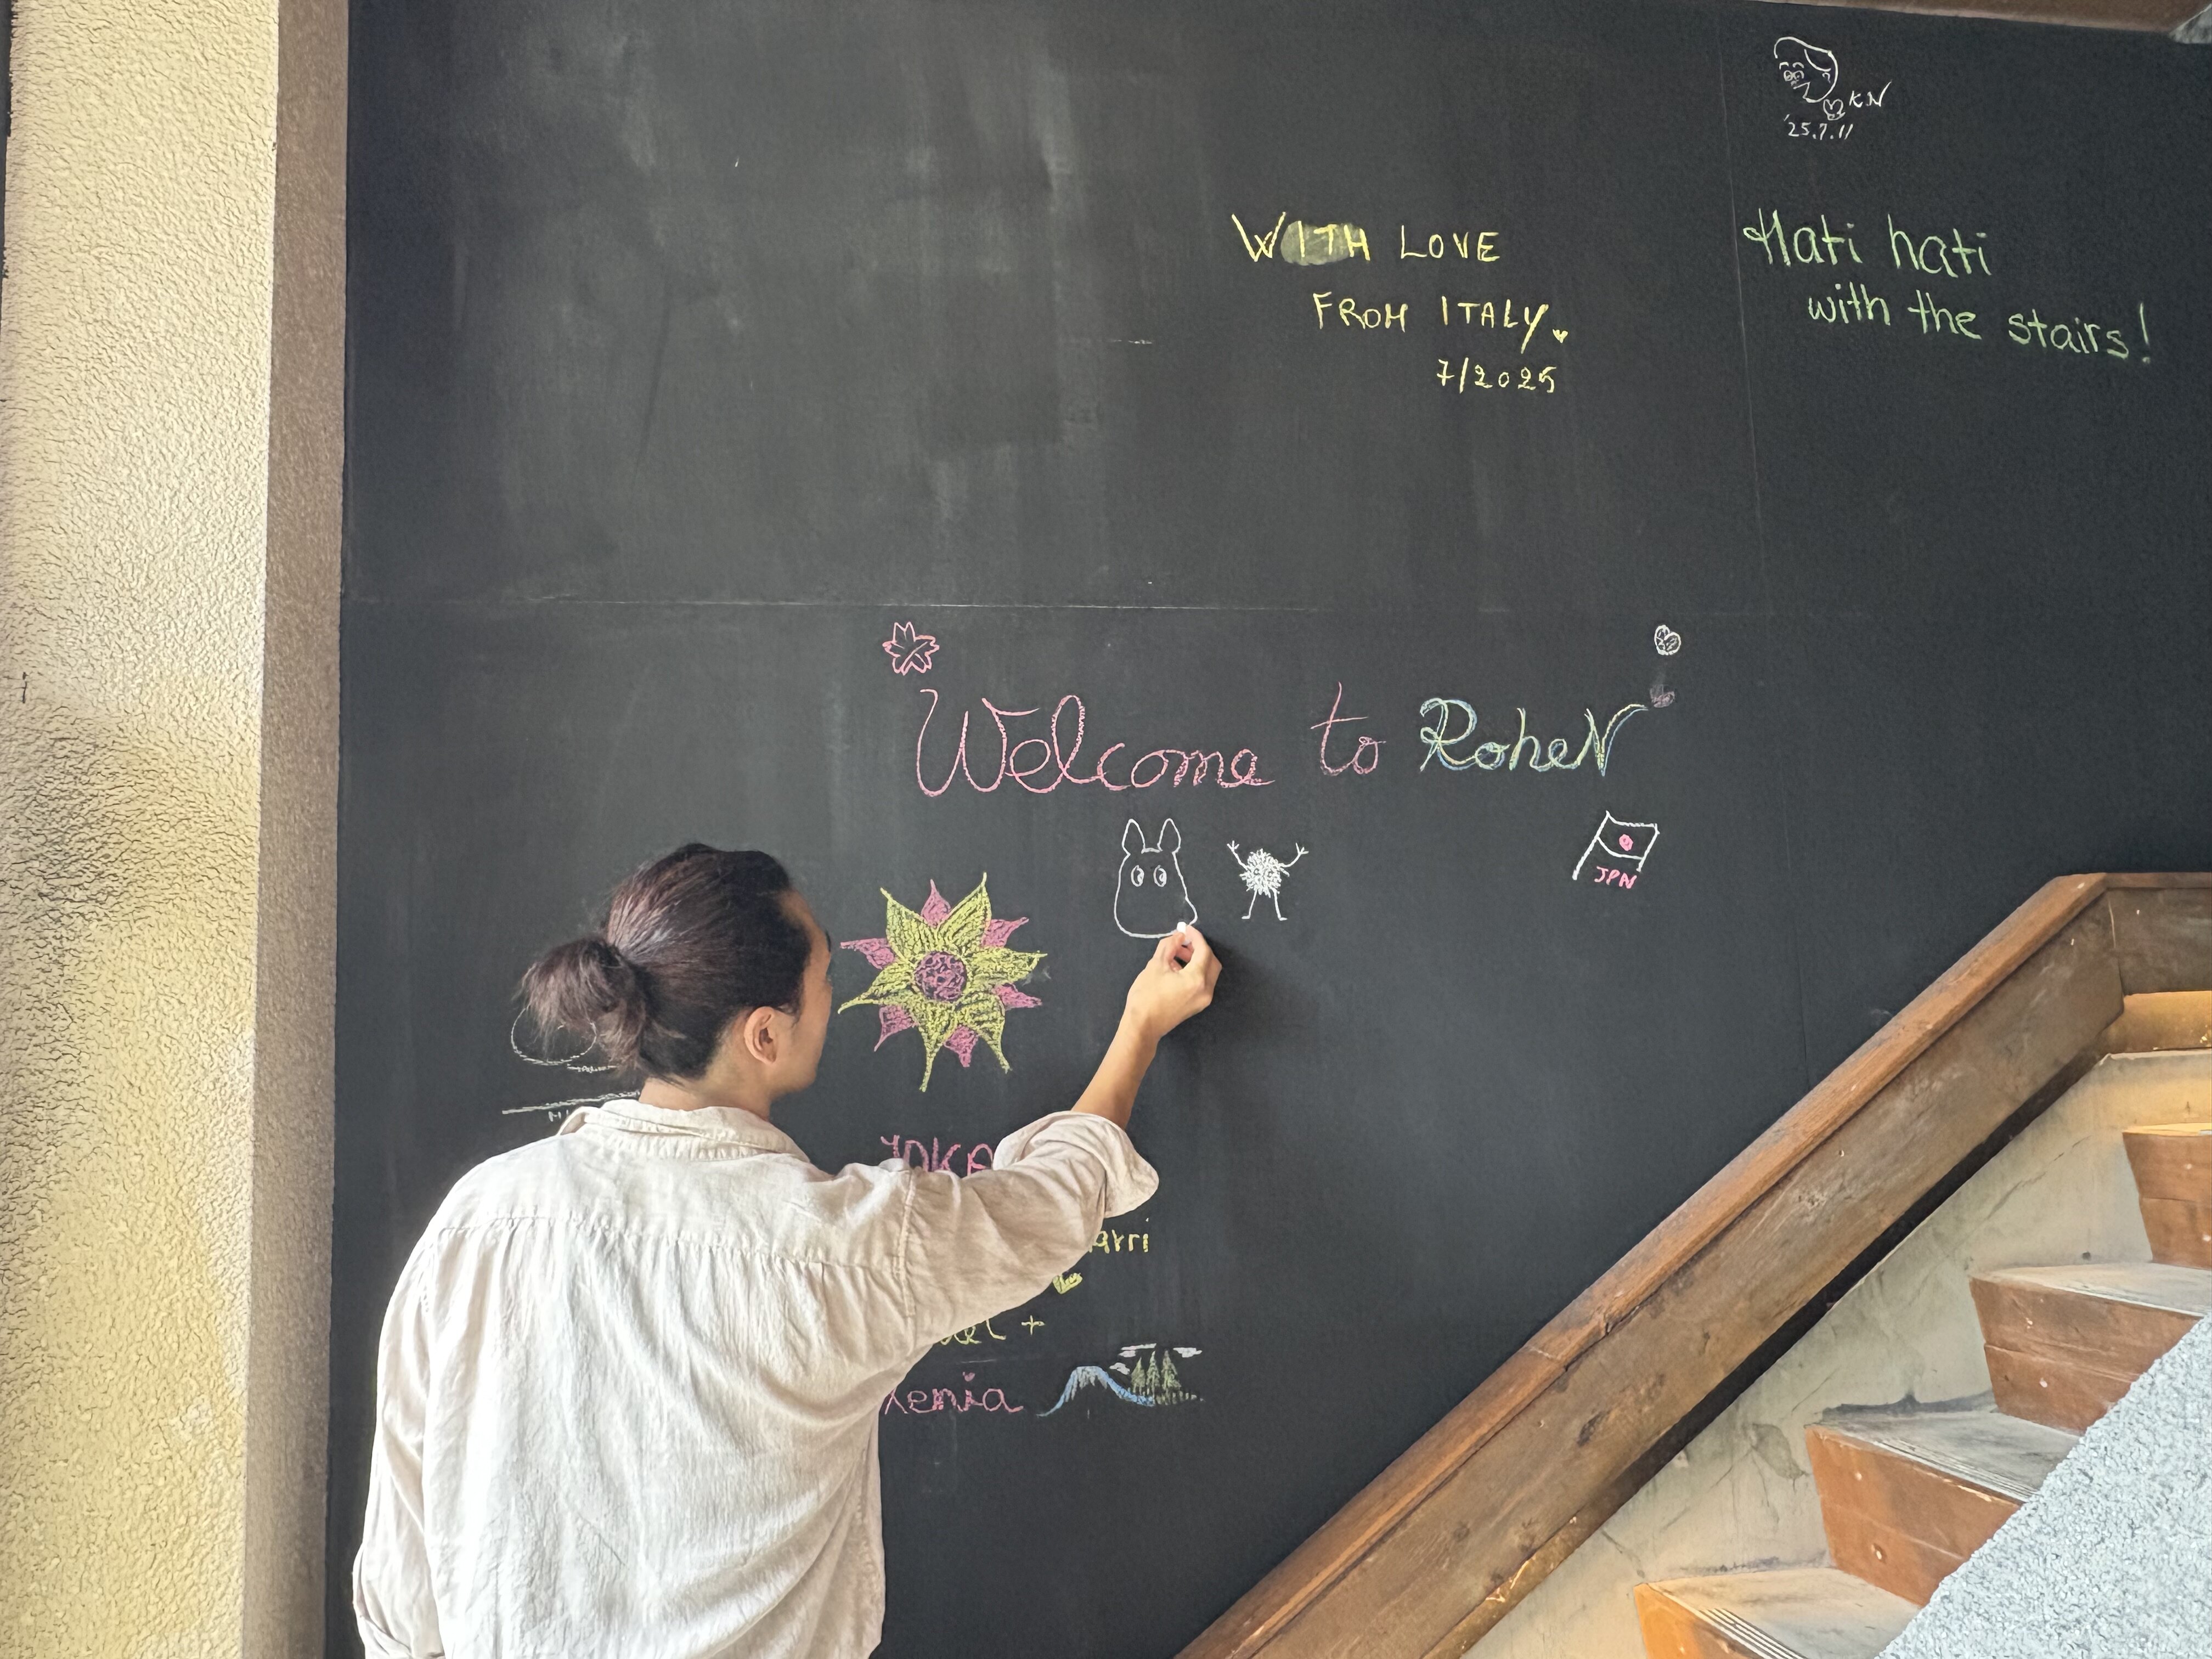 KN
'25.7.11
WITH LOVE
FROM ITALY
7/2025
Hati hati
with the stairs!
Welcome to RoheN
JPN